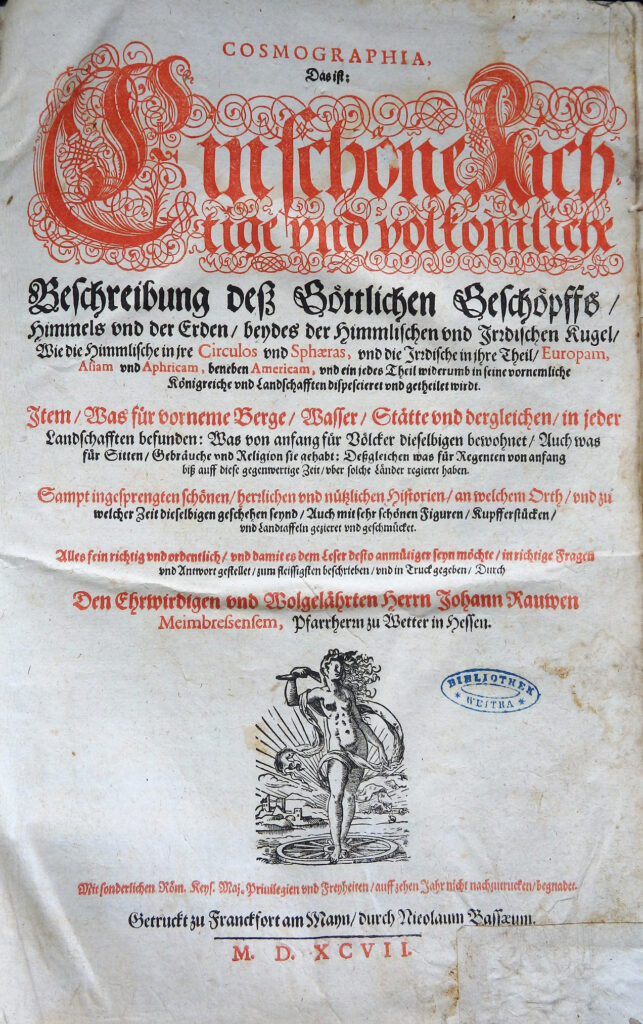 COSMOGRAPHIA,
Das ist:
Ein schöne, Rich-
tige vnd volkomliche
Beschreibung deß Göttlichen Geschöpffs /
Himmels vnd der Erden / beydes der Himmlischen vnd Jrrdischen Kugel /
Wie die Himmlische in jre Circulos vnd Sphæras, vnd die Jrrdische in jhre Theil / Europam,
Asiam vnd Aphricam, beneben Americam, vnd ein jedes Theil widerumb in seine vornemliche
Königreiche vnd Landschafften dispescieret vnd getheilet wirdt.
Jtem / Was für vorneme Berge / Wasser / Stätte vnd dergleichen / in jeder
Landschafften befunden: Was von anfang für Völcker dieselbigen bewohnet / Auch was
für Sitten / Gebräuche vnd Religion sie gehabt: Deßgleichen was für Regenten von anfang
biß auff diese gegenwertige Zeit / vber solche Länder regieret haben.
Sampt ingesprengten schönen / herrlichen vnd nützlichen Historien / an welchem Orth / vnd zu
welcher Zeit dieselbigen geschehen seynd / Auch mit sehr schönen Figuren / Kupfferstücken /
vnd Landtaffeln gezieret vnd geschmücket.
Alles fein richtig vnd ordentlich / vnd damit es dem Leser desto anmütiger seyn möchte / in richtige Fragen
vnd Antwort gestellet / zum fleissigsten beschrieben / vnd in Truck gegeben / Durch
Den Ehrwirdigen vnd Wolgelährten Herrn Johann Rauwen
Meimbreßensem, Pfarrherrn zu Wetter in Hessen.
BIBLIOTHEK
* WEITRA *
Mit sonderlichen Röm. Keys. Maj. Priuilegien vnd Freyheiten / auff zehen Jahr nicht nachzutrucken / begnadet.
Getruckt zu Franckfort am Mayn / durch Nicolaum Bassæum.
M. D. XCVII.